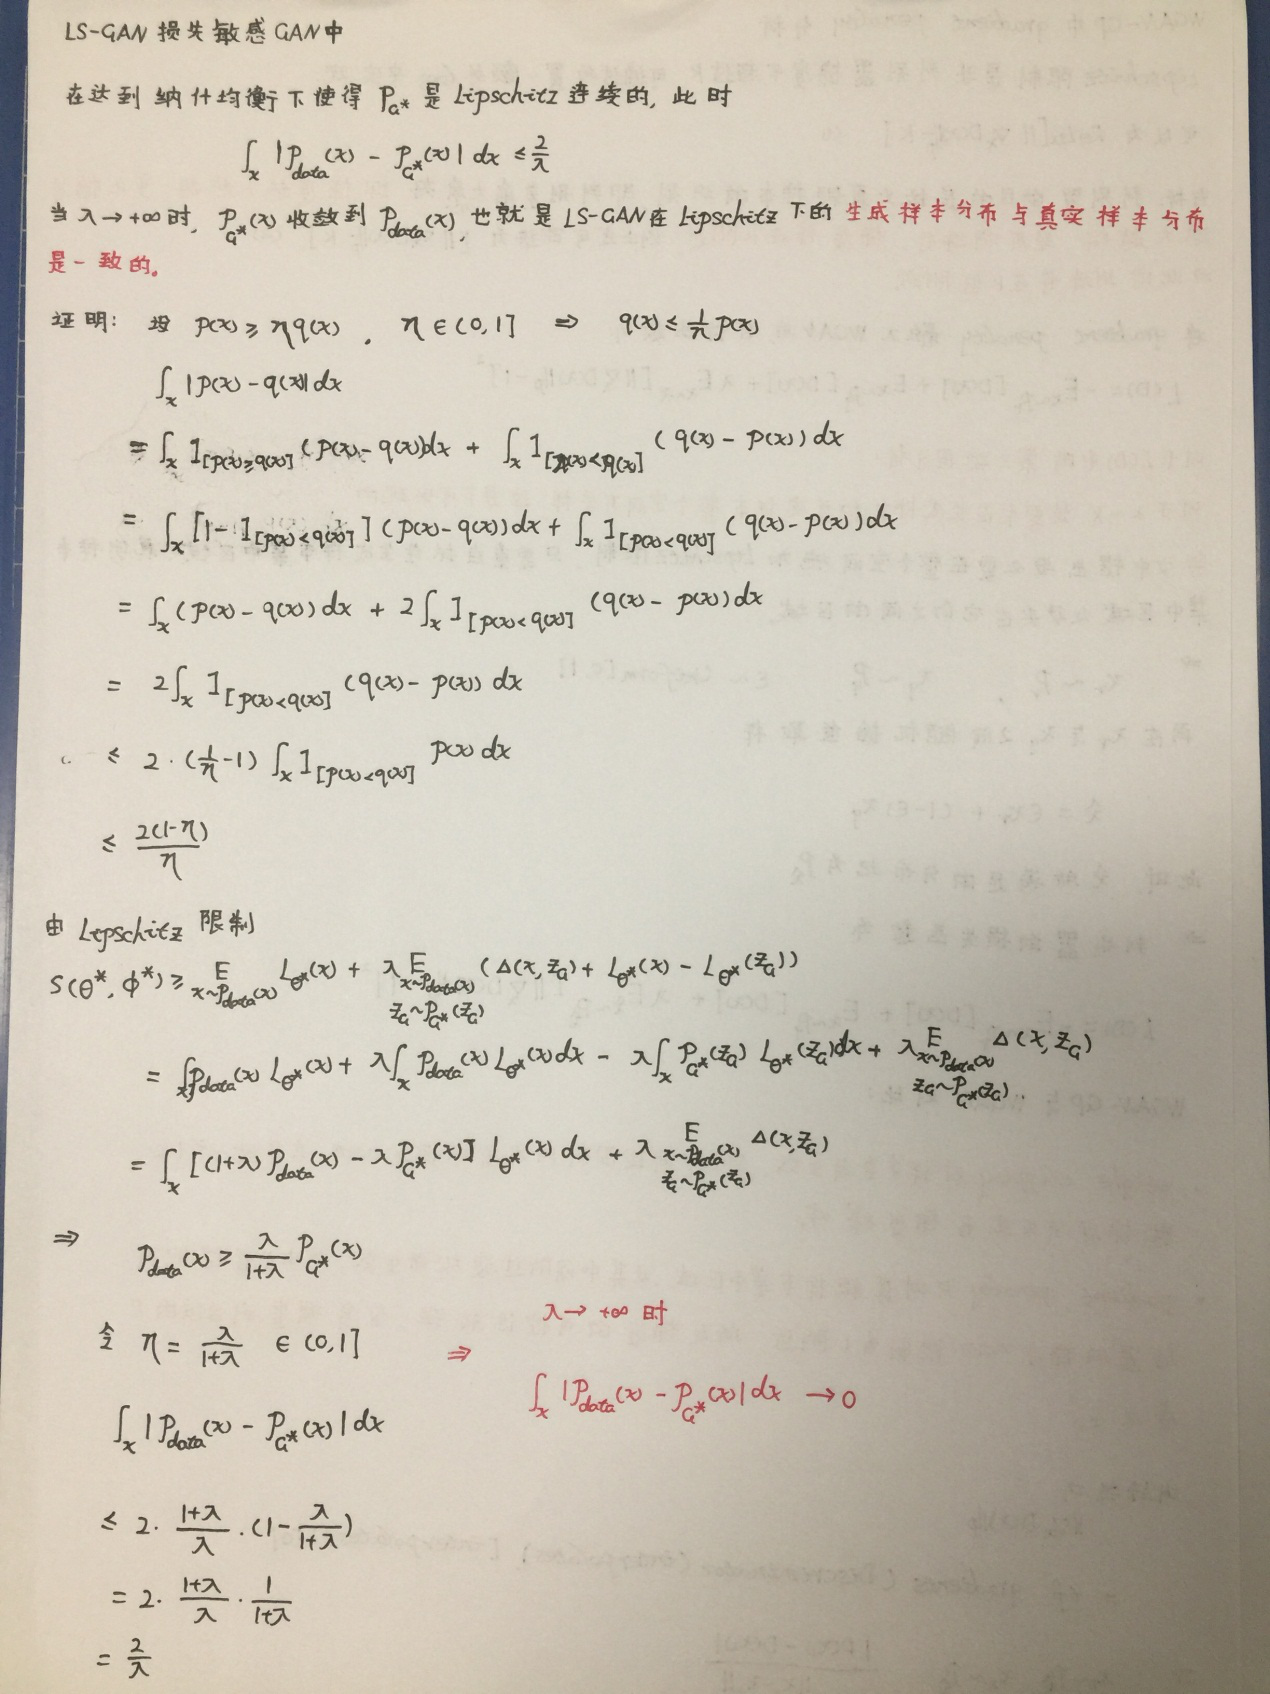 LS-GAN 损失敏感GAN中
在达到纳什均衡下使得 P_{G*} 是 Lipschitz 连续的, 此时
∫_x |P_{data}(x) - P_{G*}(x)| dx ≤ 2/λ
当 λ→+∞时, P_{G*}(x) 收敛到 P_{data}(x), 也就是 LS-GAN在 Lipschitz 下的 生成样本分布与真实样本分布
是一致的。
证明: 设 p(x) ≥ ηq(x) , η∈(0,1] ⇒ q(x) ≤ 1/η p(x)
∫_x |p(x) - q(x)| dx
= ∫_x 1_{[p(x)≥q(x)]} (p(x) - q(x))dx + ∫_x 1_{[p(x)<q(x)]} (q(x) - p(x)) dx
= ∫_x [1 - 1_{[p(x)<q(x)]}] (p(x) - q(x)) dx + ∫_x 1_{[p(x)<q(x)]} (q(x) - p(x))dx
= ∫_x (p(x) - q(x)) dx + 2∫_x 1_{[p(x)<q(x)]} (q(x) - p(x)) dx
= 2∫_x 1_{[p(x)<q(x)]} (q(x) - p(x)) dx
≤ 2·(1/η - 1) ∫_x 1_{[p(x)<q(x)]} p(x) dx
≤ 2(1-η)/η
由 Lipschitz 限制
S(θ*, φ*) ≥ E_{x~P_{data}(x)} L_{θ*}(x) + λ E_{x~P_{data}(x), z_G~P_{G*}(z_G)} (Δ(x, z_G) + L_{θ*}(x) - L_{θ*}(z_G))
= ∫_x P_{data}(x) L_{θ*}(x) + λ∫_x P_{data}(x) L_{θ*}(x) dx - λ∫_x P_{G*}(z_G) L_{θ*}(z_G)dx + λ E_{x~P_{data}(x), z_G~P_{G*}(z_G)} Δ(x, z_G)
= ∫_x [(1+λ) P_{data}(x) - λ P_{G*}(x)] L_{θ*}(x) dx + λ E_{x~P_{data}(x), z_G~P_{G*}(z_G)} Δ(x, z_G)
⇒ P_{data}(x) ≥ λ/(1+λ) P_{G*}(x)
令 η = λ/(1+λ) ∈ (0,1] ⇒ λ→+∞ 时
∫_x |P_{data}(x) - P_{G*}(x)| dx → 0
∫_x |P_{data}(x) - P_{G*}(x)| dx
≤ 2·(1+λ)/λ·(1 - λ/(1+λ))
= 2·(1+λ)/λ·1/(1+λ)
= 2/λ